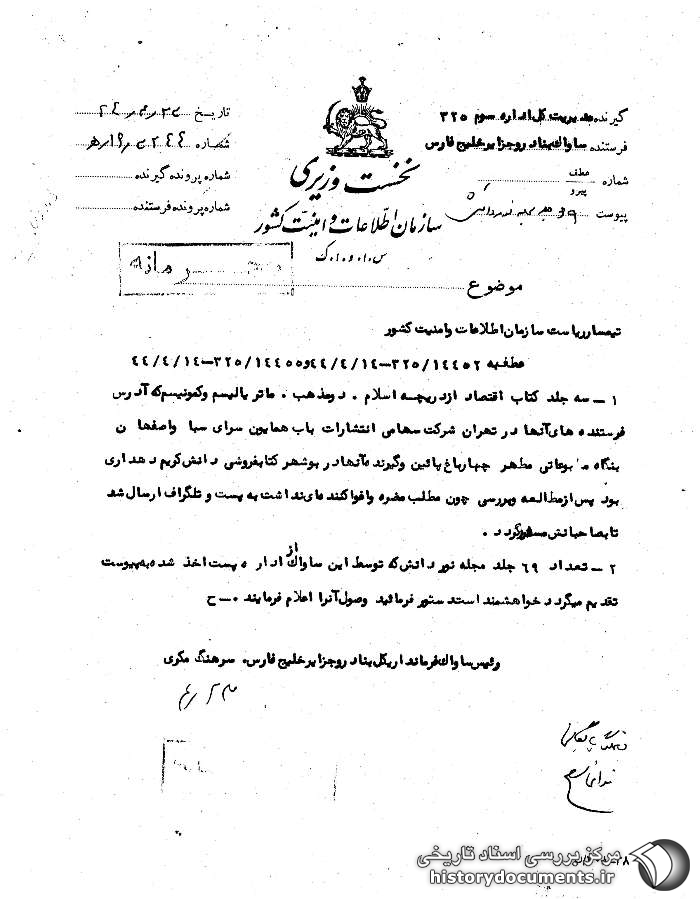 گیرنده مدیریت کل اداره سوم ۳۲۵
فرستنده ساواک بنادر و جزایر خلیج فارس
شماره عطف پیرو
پیوست ۶۹ جلد مجله نور دانش
تاریخ
شماره ۱۹۲۴۴
شماره پرونده گیرنده
شماره پرونده فرستنده
نخست وزیری
سازمان اطلاعات و امنیت کشور
س.ا.و.ا.ک
موضوع
تیمسار ریاست سازمان اطلاعات وامنیت کشور
عطف به ۳۲۵/۱۴۴۵۲–۴۴/۴/۱۴و۳۲۵/۱۴۴۵۵–۴۴/۴/۱۴
۱ – سه جلد کتاب اقتصاد ازدریچه اسلام . دومذهب . ماتریالیسم وکمونیسم که آدرس
فرستنده های آنها در تهران شرکت سهامی انتشارات باب همایون سرای سبا واصفهان
بنگاه مطبوعاتی مطهر چهارباغ پائین وگیرنده آنهادر بوشهر کتابفروشی دانش کریم دهداری
بود پس ازمطالعه وبررسی چون مطلب مضره واغواکننده ای نداشت به پست و تلگراف ارسال شد
تابصاحبانش مستردگردد .
۲ – تعداد ۶۹ جلد مجله نور دانش که توسط این ساواک از اداره پست اخذ شده به پیوست
تقدیم میگردد خواهشمند است دستور فرمائید وصول آنرا اعلام فرمایند . – ح
رئیس ساواک فرمانداریکل بنادر وجزایر خلیج فارس. سرهنگ مکری
مرکز بررسی اسناد تاریخی
historydocuments.ir